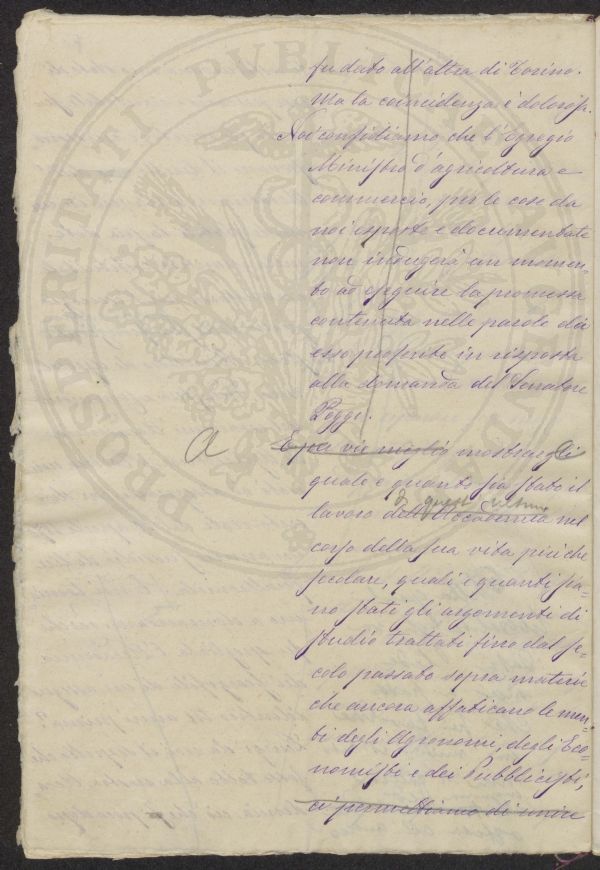 fu dato all'altra di Torino.
Ma la coincidenza è doloros.
Noi confidiamo che l'Egregio
Ministro d'agricoltura e
commercio, per le cose da
noi esposte e documentate
non indugerà un momen-
to ad eseguire la promessa
contenuta nelle parole da
esso proferite in risposta
alla domanda del Senatore
Poggi.
a E per vie meglio mostrargli
quale e quanto sia stato il
di quest'ultima
lavoro dell'Accademia nel
corso della sua vita più che
secolare, quali e quanti sia-
no stati gli argomenti di
studio trattati fino dal se-
colo passato sopra materie
che ancora affaticano le men-
ti degli Agronomi, degli Eco-
nomisti e dei Pubblicisti,
ci permettiamo di unire
PROSPERITATI PUBLICAE